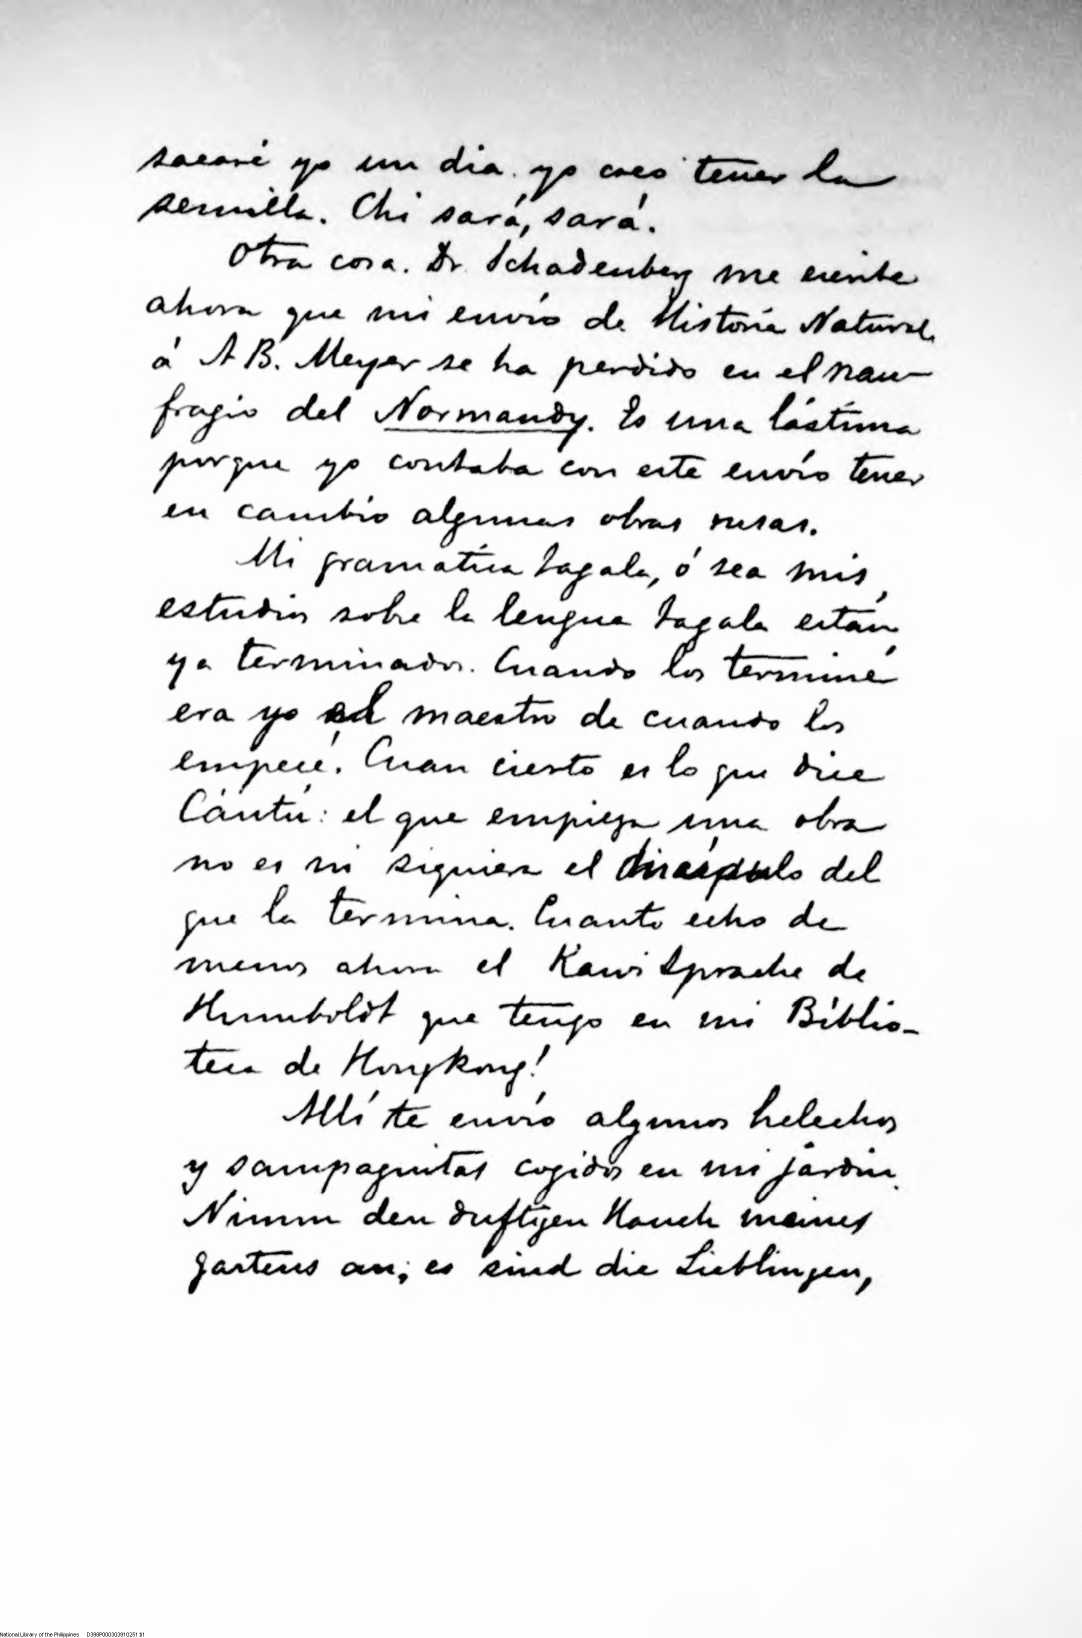 sacaré yo un dia. yo creo tener la
semilla. Chi sará, sará.
Otra cosa. Dr. Schadenberg me escribe
ahora que mi envío de Historia Natural
á A B. Meyer se ha perdido en el nau-
fragio del Normandy. Es una lástima
porque yo contaba con este envío tener
en cambio algunas obras rusas.
Mi gramatica tagala, ó sea mis
estudios sobre la lengua tagala están
ya terminados. Cuando los terminé
era yo el maestro de cuando los
empecé. Cuan cierto es lo que dice
Cántú: el que empieza una obra
no es ni siquiera el discípulo del
que la termina. Cuanto echo de
menos ahora el Kawi Sprache de
Humboldt que tengo en mi Biblio-
teca de Hongkong!
Allí te envío algunos helechos
y sampaguitas cogidos en mi jardin.
Nimm den duftigen Hauch meines
gartens an; es sind die Lieblingen,
National Library of the Philippines